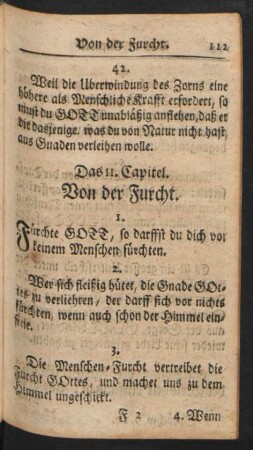 Von der Furcht. 111
42.
Weil die Uberwindung des Zorns eine
höhere als Menschliche Krafft erfordert, so
must du GOTT unabläßig anflehen, daß er
dir dasjenige, was du von Natur nicht hast,
aus Gnaden verleihen wolle.
Das 11. Capitel.
Von der Furcht.
1.
Fürchte GOTT, so darffst du dich vor
keinem Menschen fürchten.
2.
Wer sich fleißig hütet, die Gnade GOt-
tes zu verliehren, der darff sich vor nichts
fürchten, wenn auch schon der Himmel ein-
fiele.
3.
Die Menschen-Furcht vertreibet die
Furcht GOttes, und machet uns zu dem
Himmel ungeschickt.
F 2 4. Wenn